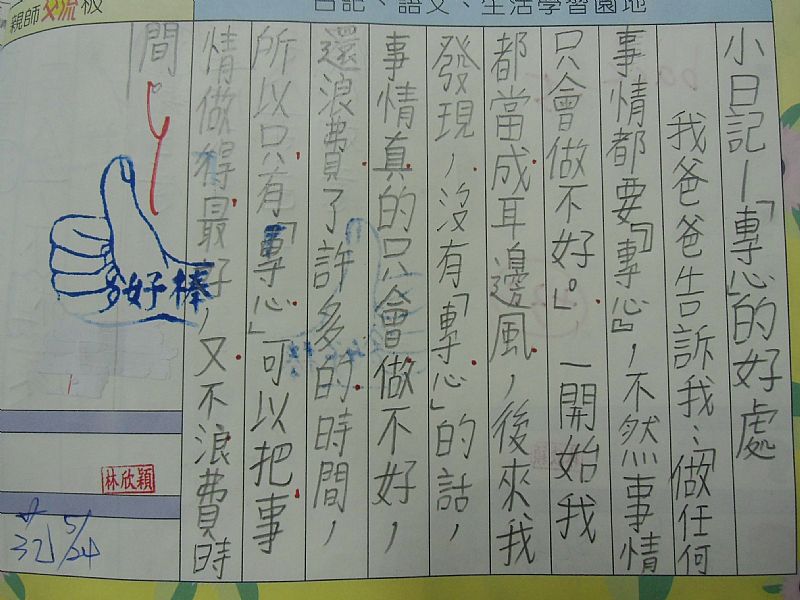 親師交流板
日記、語文、生活學習園地
小日記—「專心」的好處
我爸爸告訴我：「做任何
事情都要『專心』，不然事情
只會做不好。」一開始我
都當成耳邊風，後來我
發現，沒有「專心」的話，
事情真的只會做不好，
還浪費了許多的時間，
所以只有「專心」可以把事
情做得最好，又不浪費時
間。
好棒
林欣穎
5/24